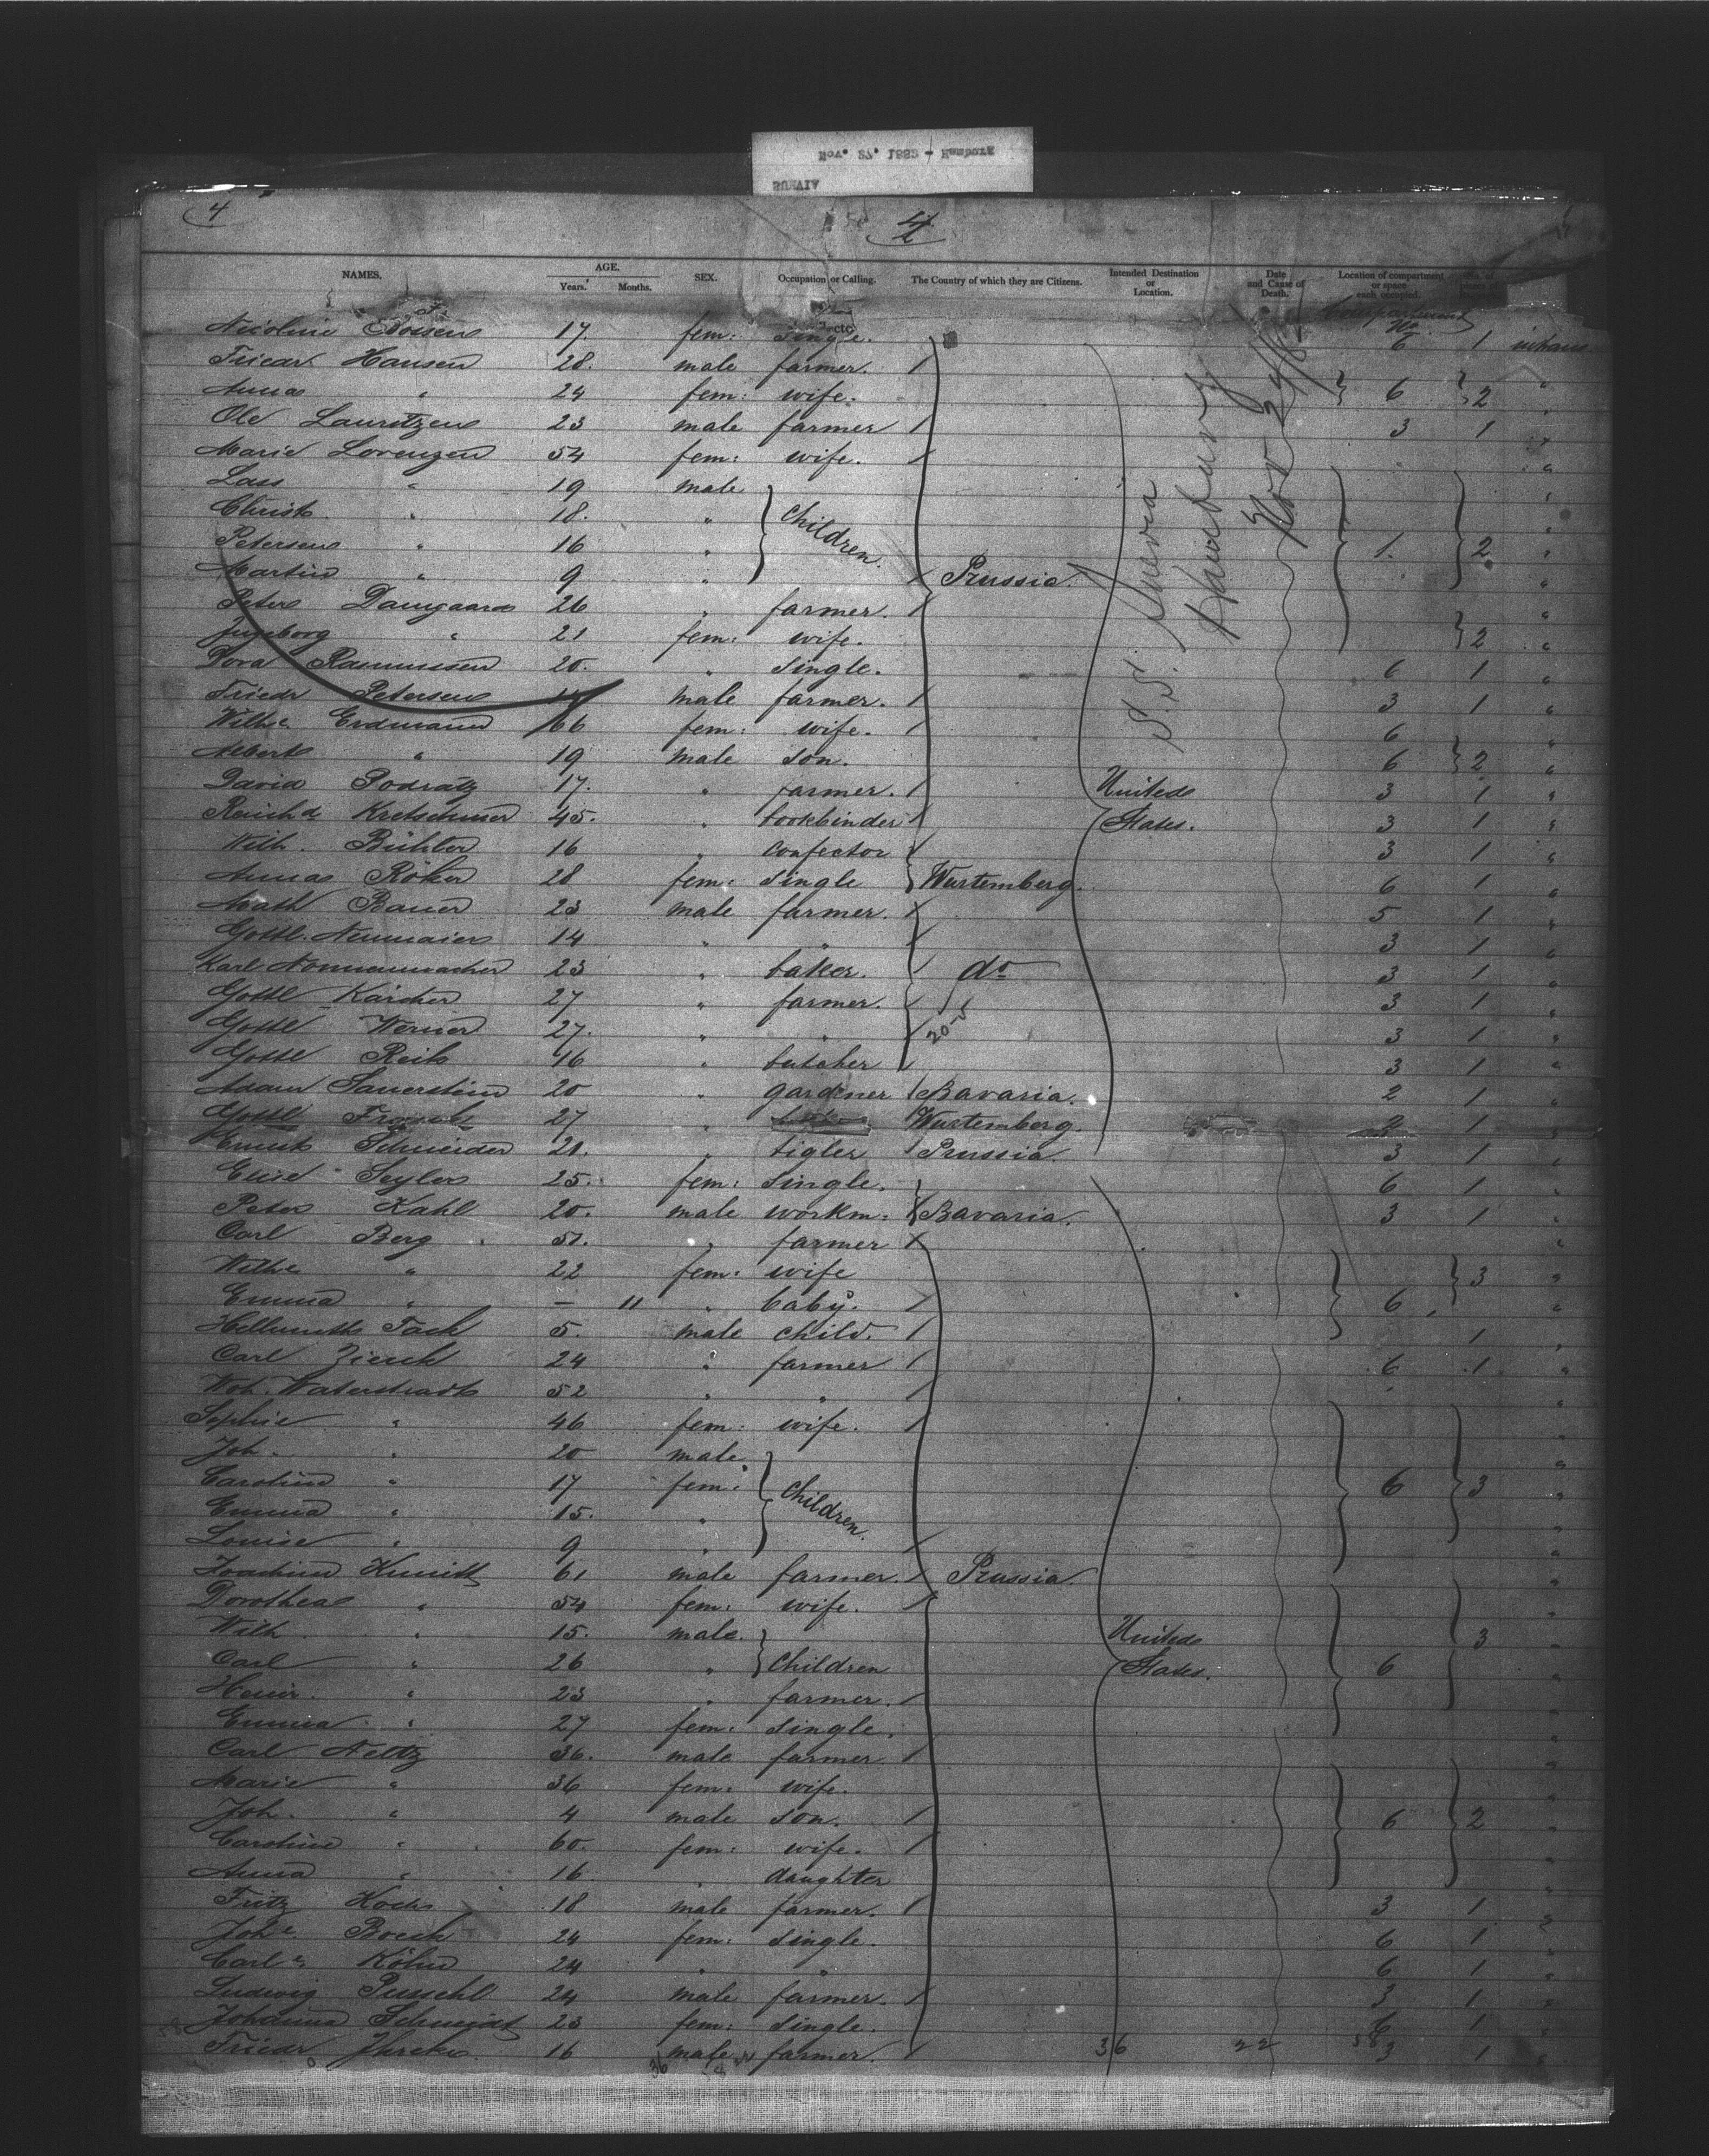 SUEVIA
Nov. 27. 1882 - Hamburg
4
4
NAMES. AGE. Years. Months. SEX. Occupation or Calling. The Country of which they are Citizens. Intended Destination or Location. Date and Cause of Death. Location of compartment or space each occupied.
S.S. Suevia
Hamburg
Nov 27/82
17. fem: single. 6 1 
Friedr. Hansen 28. male farmer.
Anna " 24 fem: wife. 6 2 "
Ole Lauritzen 23 male farmer 3 1 "
Marie Lorenzen 54 fem: wife. "
Lass " 19 male "
Christ. " 18. " Children. "
Petersen " 16 " 1. 2 "
Martin " 9 " Prussia. "
Peter Damgaard 26 " farmer. "
Ingeborg " 21 fem: wife. 2 "
Dora Rasmussen 20. " single. 6 1 "
Friedr Petersen male farmer. 3 1 "
Wilhe Erdmann 66 fem: wife. 6 "
Albert " 19 male son. 6 2 "
David Podratz 17. " farmer. United 3 1 "
Reinhd Kretschmer 45. " bookbinder States. 3 1 "
Wilh. Bühler 16 " confector 3 1 "
Anna Röker 28 fem: single Wurtemberg. 6 1 "
Math Bauer 23 male farmer. 5 1 "
Gottl. Neumaier 14 " " 3 1 "
Karl Nonnenmacher 23 " baker. do 3 1 "
Gottl Karcher 27 " farmer. 3 1 "
Gottl Werner 27. " " 3 1 "
Gottl Reik 16 " butcher 3 1 "
Adam Sauerstein 20 " gardener Bavaria. 2 1 "
Gottl 27 " Wurtemberg. 2 1 "
Ernst Schneider 21. " tigler Prussia. 3 1 "
Elise Seyler 25. fem: single. 6 1 "
Peter Kahl 20. male workm: Bavaria. 3 1 "
Carl Berg 51. " farmer "
Wilhe " 22 fem: wife 3 "
Emma " – 11 " baby. 6 "
Hellmuth Tack 5. male child. 1 "
Carl Zierck 24 " farmer 6 1 "
Waterstradt 52 " " "
Sophie " 46 fem: wife. "
Joh. " 20 male. "
Caroline " 17 fem: Children. 6 3 "
Emma " 15. " "
Louise " 9 " "
Joachim 61 male farmer. Prussia. "
Dorothea " 54 fem: wife. "
Wilh " 15. male. United 3 "
Carl " 26 " Children States. 6 "
Heinr. " 23 " farmer. "
Emma " 27 fem: single. "
Carl Neitz 36. male farmer "
Marie " 36 fem: wife. "
Joh. " 4 male son. 6 2 "
Caroline " 60. fem: wife. "
Anna " 16 " daughter "
Fritz Koch 18 male farmer. 3 1 "
Johe. Boeck 24 fem: single. 6 1 "
Carle Köhn 24 " " 6 1 "
Ludwig Puschel 24 male farmer. 3 1 "
Johanna Schmidt 23 fem: single. 6 1 "
Friedr 16 male farmer. 36 22 58 3 1 "